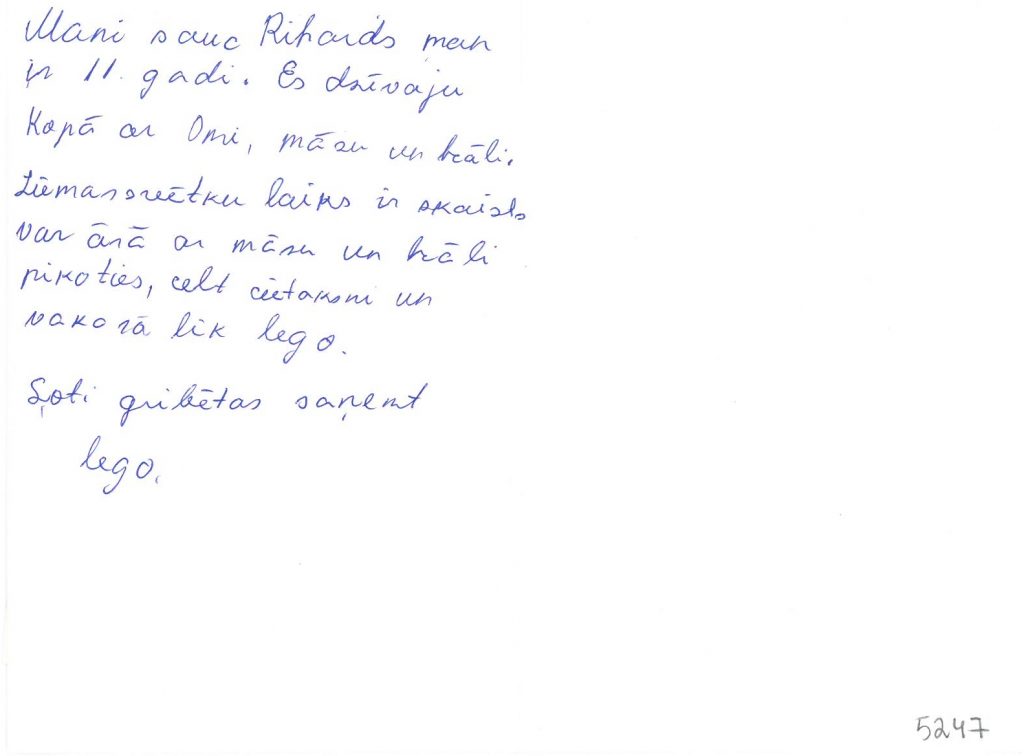 Mani sauc Rihards man
ir 11. gadi. Es dzīvoju
Kopā ar Omi, māsu un brāli.
Ziemassvētku laiks ir skaists
var ārā ar māsu un brāli
pikoties, celt cietoksni un
vakarā lik lego.
Ļoti gribētas saņemt
lego.
5247